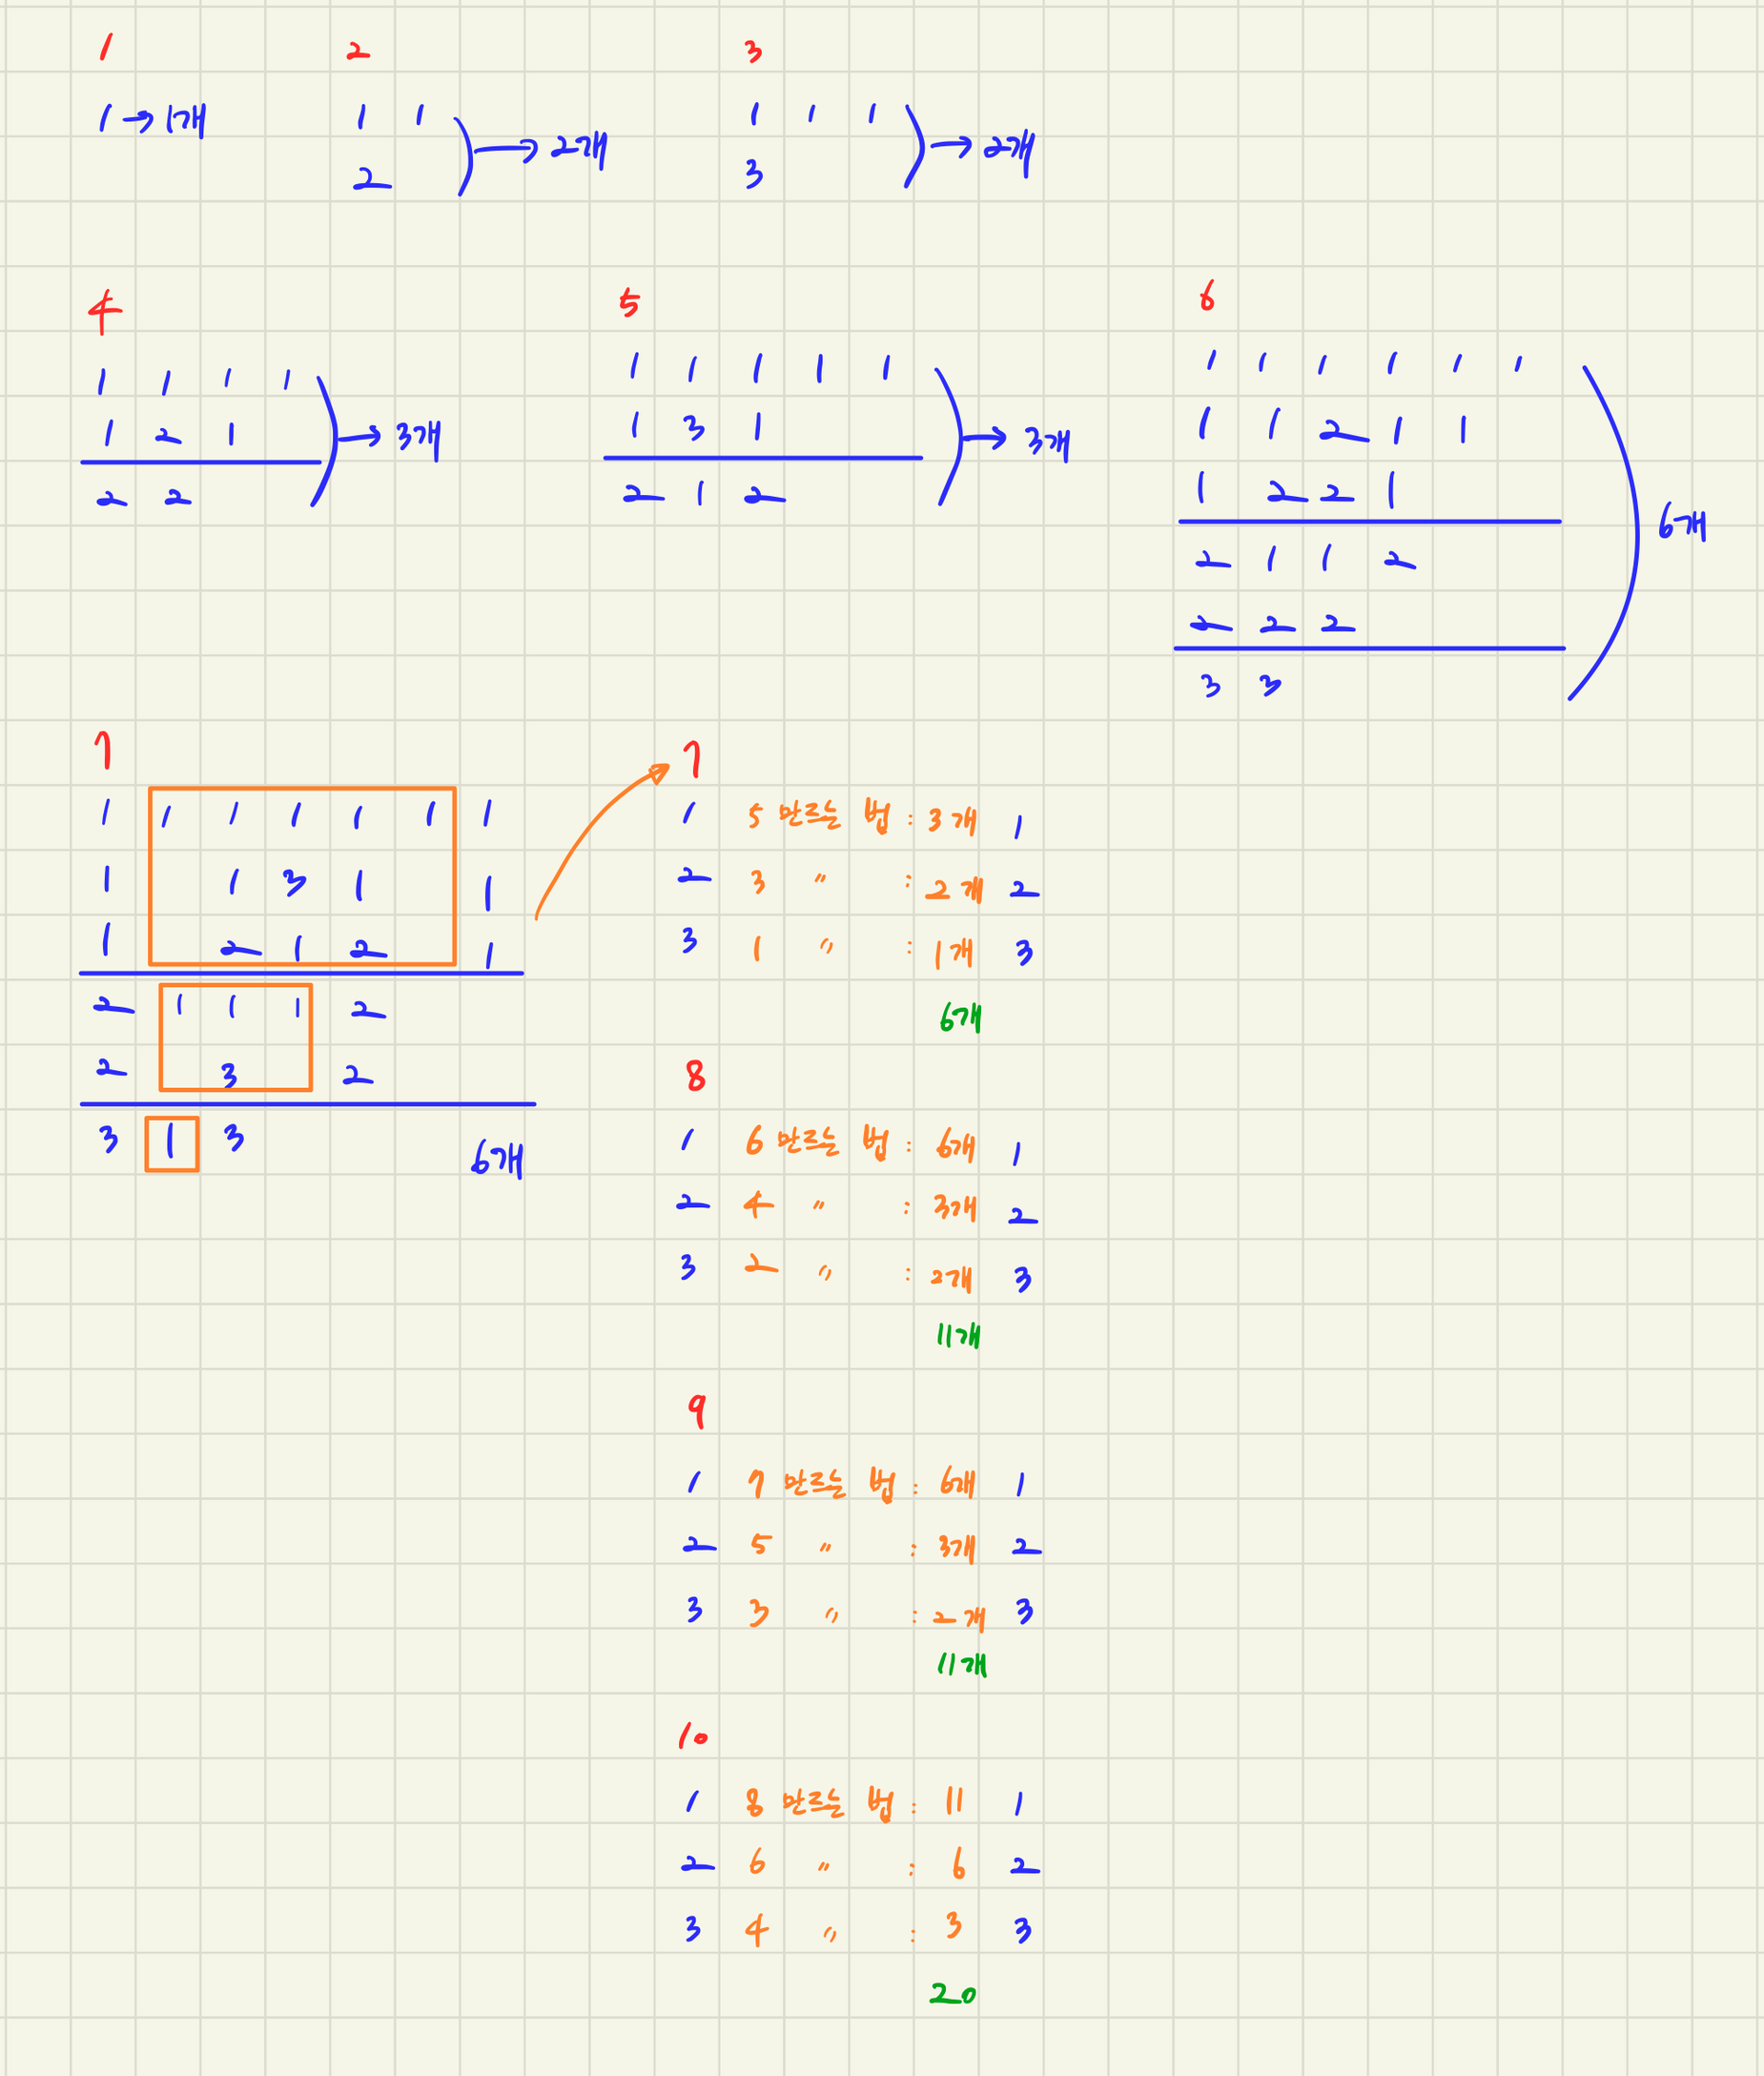 1 2 3
1 → 1개
1 1
2
→ 2개
1 1 1
3
→ 2개
4 5 6
1 1 1 1
1 2 1
2 2
→ 3개
1 1 1 1 1
1 3 1
2 1 2
→ 3개
1 1 1 1 1 1
1 1 2 1 1
1 2 2 1
2 1 1 2
2 2 2
3 3
6개
7
1 1 1 1 1 1 1
1 1 3 1 1
1 2 1 2 1
2 1 1 1 2
2 3 2
3 1 3
6개
7
1 5 만드는 법 : 3개 1
2 3 〃 : 2개 2
3 1 〃 : 1개 3
6개
8
1 6 만드는 법 : 6개 1
2 4 〃 : 3개 2
3 2 〃 : 2개 3
11개
9
1 7 만드는 법 : 6개 1
2 5 〃 : 3개 2
3 3 〃 : 2개 3
11개
10
1 8 만드는 법 : 11 1
2 6 〃 : 6 2
3 4 〃 : 3 3
20